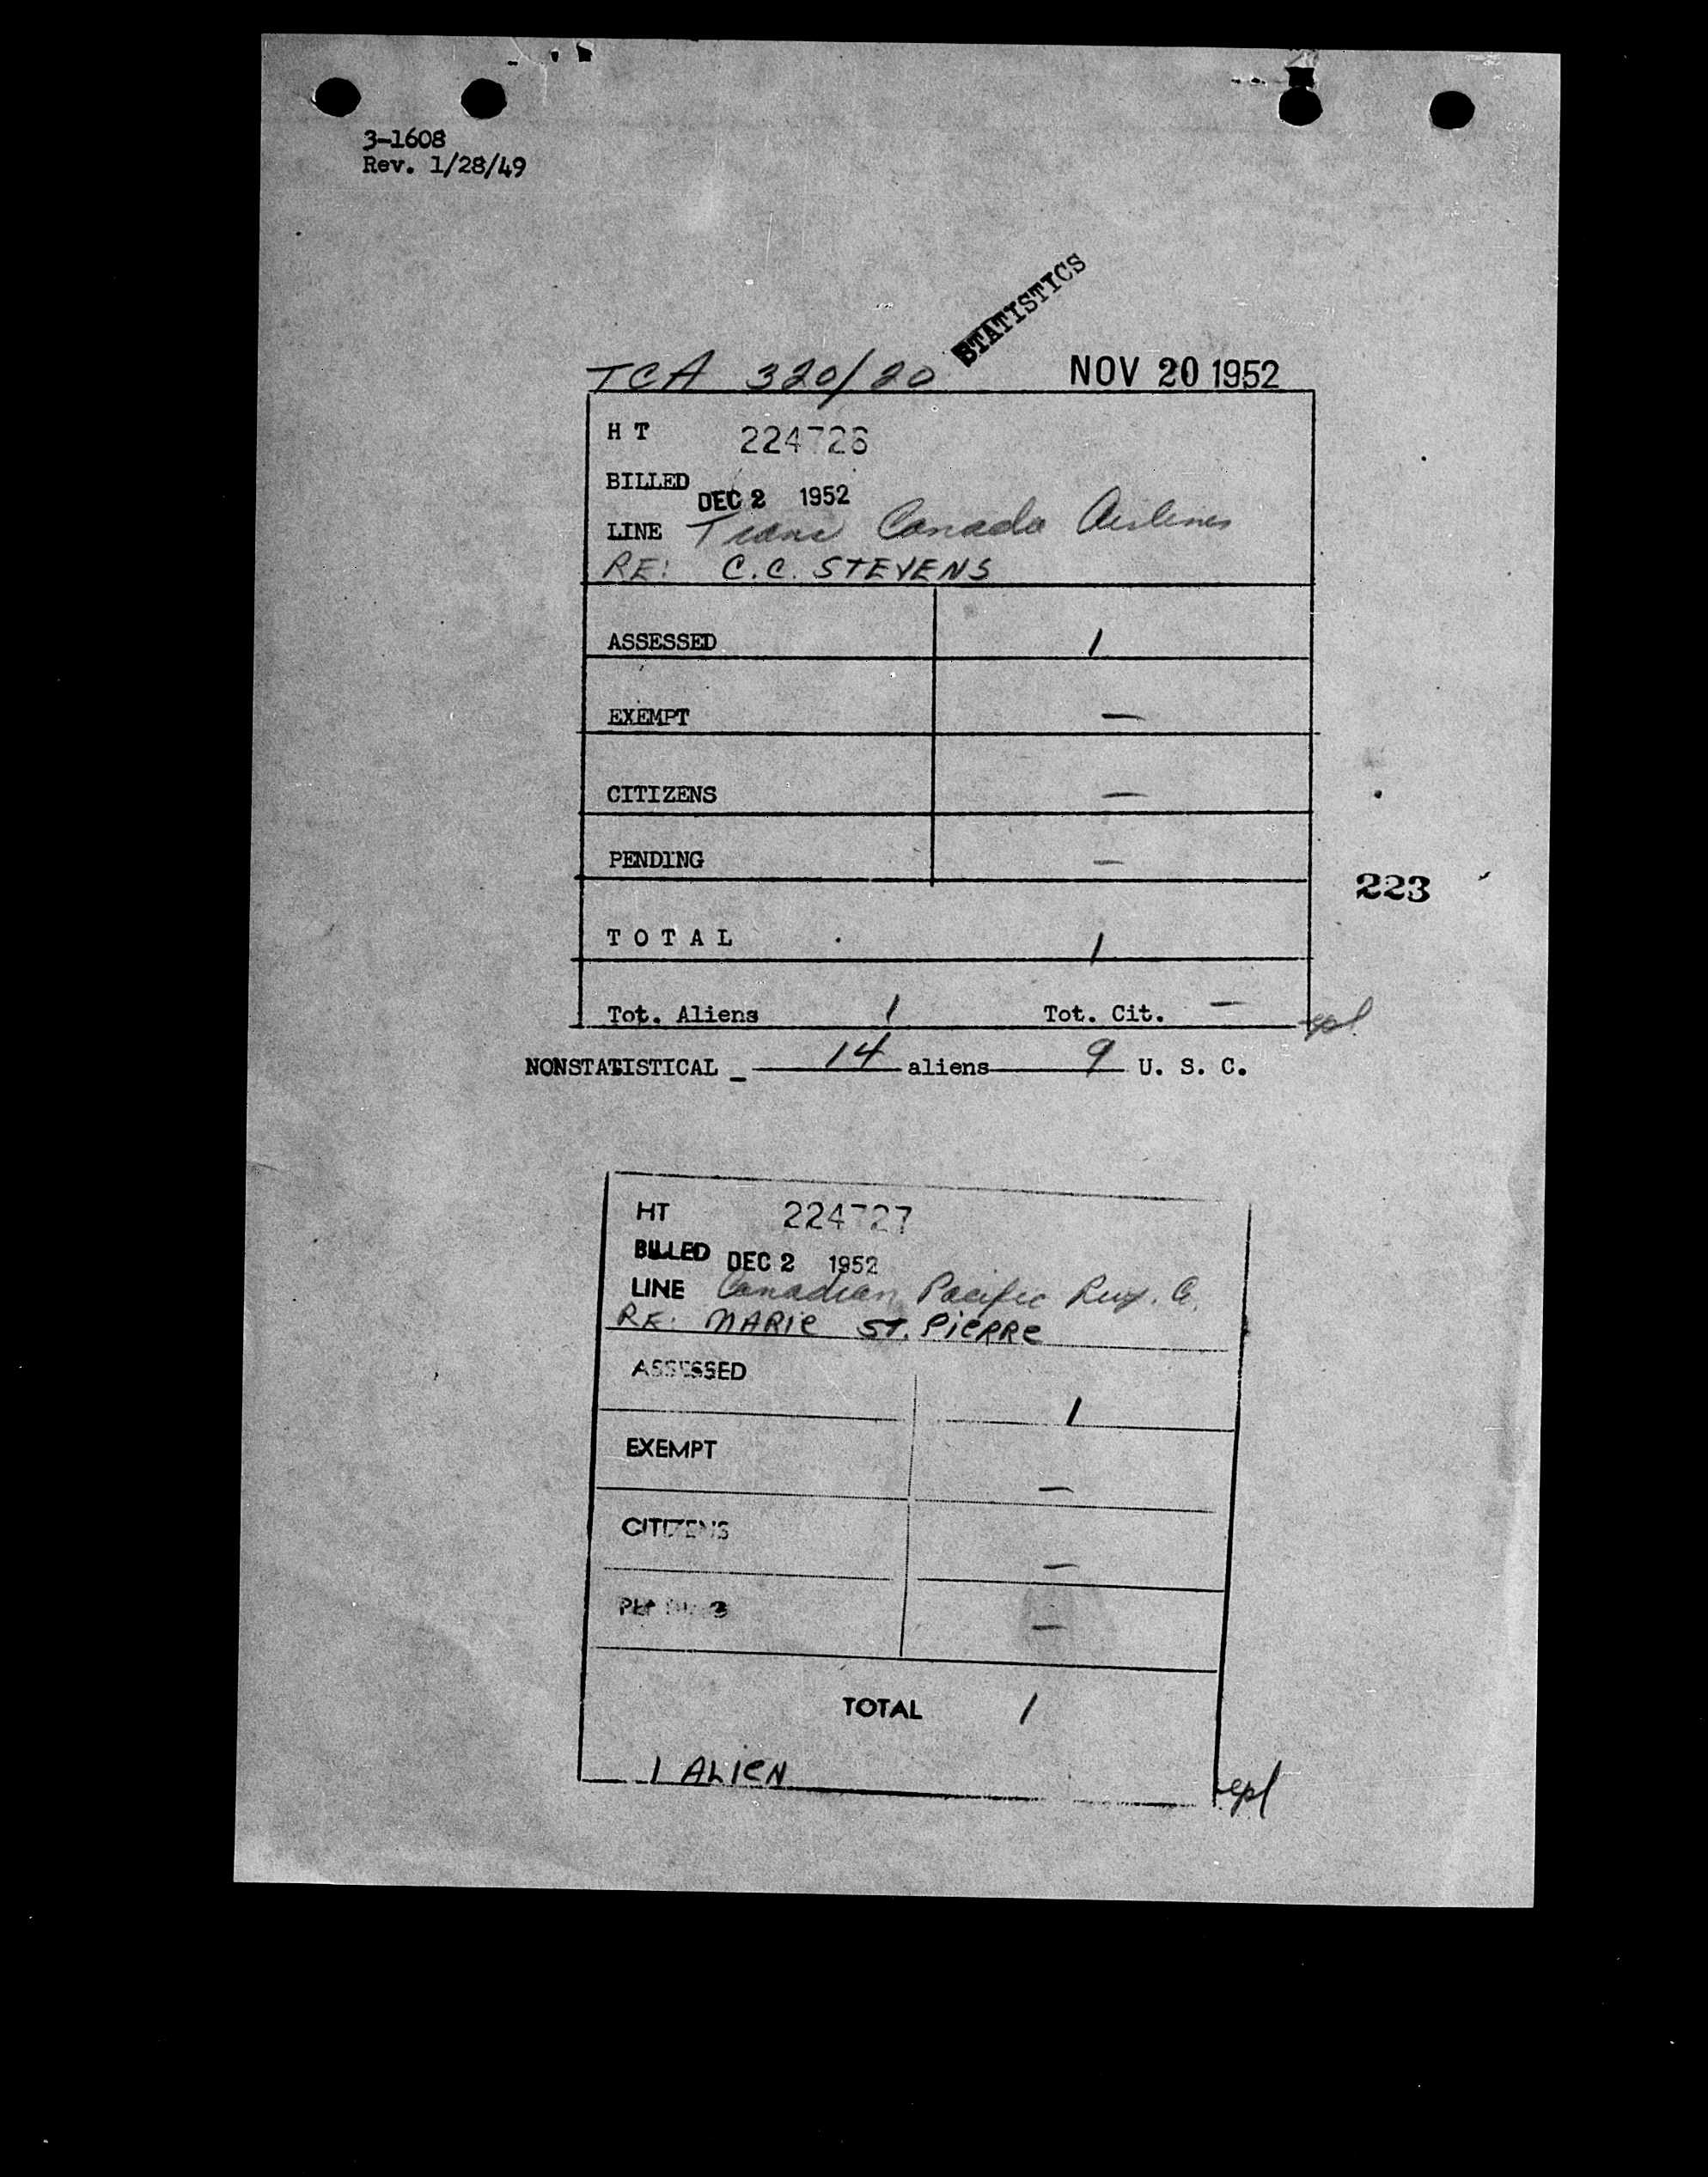 3-1608
Rev. 1/28/49
STATISTICS
TCA 320/20 NOV 20 1952
H T 224726
BILLED DEC 2 1952
LINE Trans Canada Airlines
RE: C.C. STEVENS
ASSESSED 1
EXEMPT —
CITIZENS —
PENDING —
223
T O T A L 1
Tot. Aliens 1 Tot. Cit. — epl
NONSTATISTICAL _ 14 aliens 9 U. S. C.
HT 224727
BILLED DEC 2 1952
LINE Canadian Pacific Rwy. Co.
RE: MARIE ST. PIERRE
ASSESSED 1
EXEMPT —
CITIZENS —
PENDING —
TOTAL 1
1 ALIEN epl